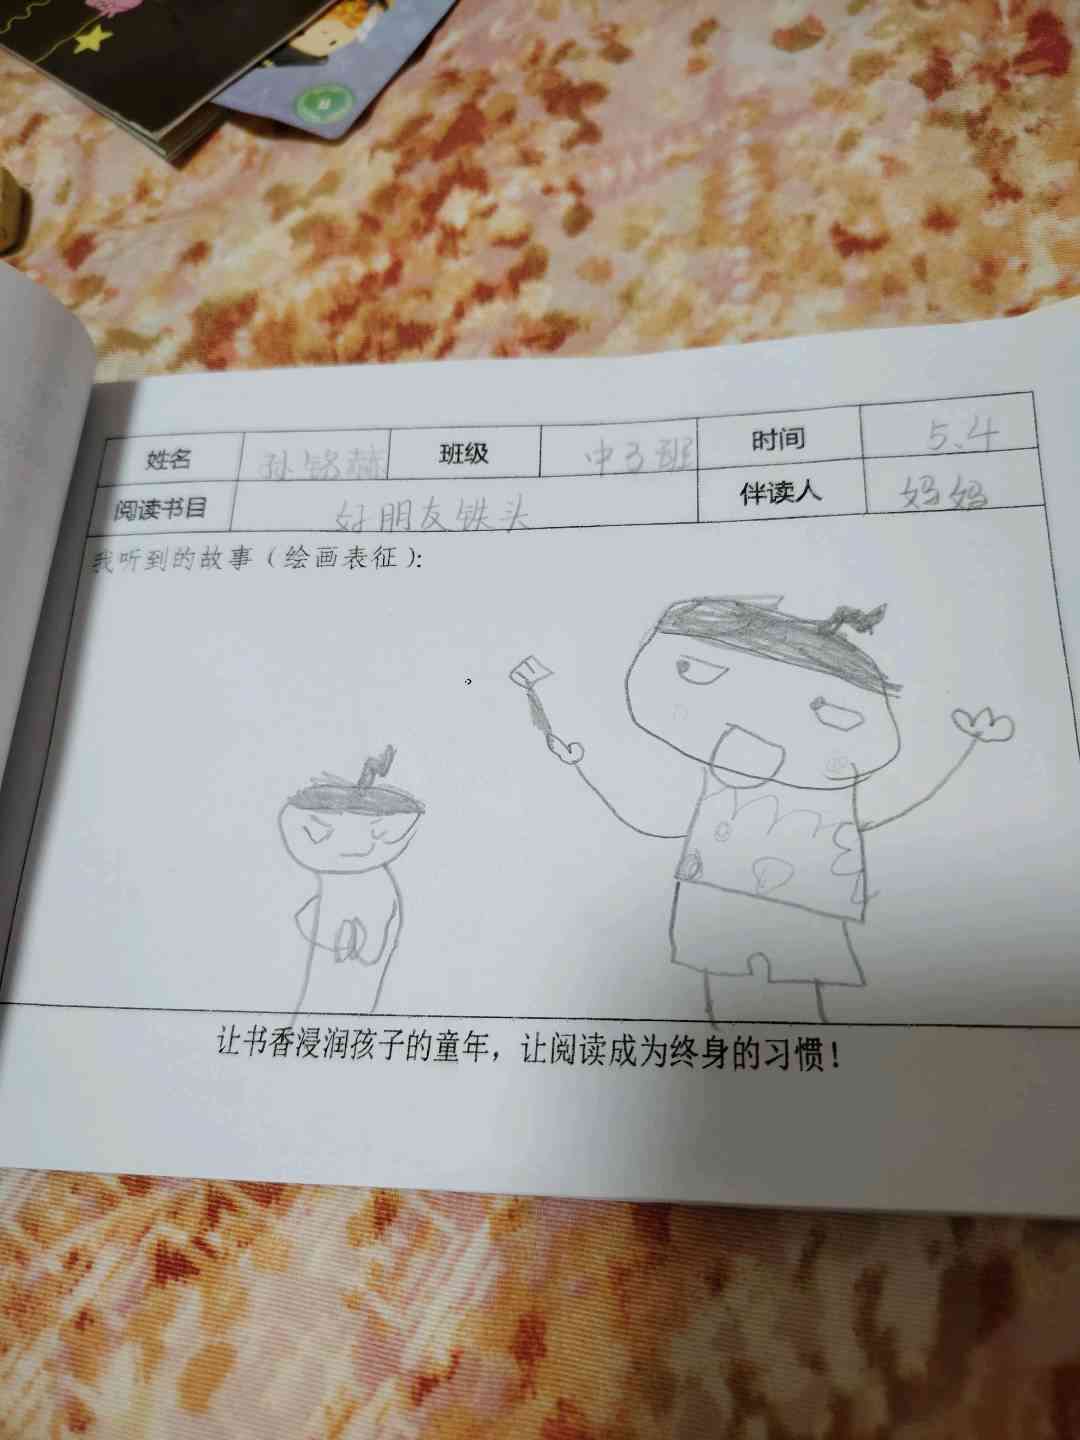 姓名 孙铭赫 班级 中3班 时间 5.4
阅读书目 好朋友铁头 伴读人 妈妈
我听到的故事（绘画表征）:
让书香浸润孩子的童年，让阅读成为终身的习惯！